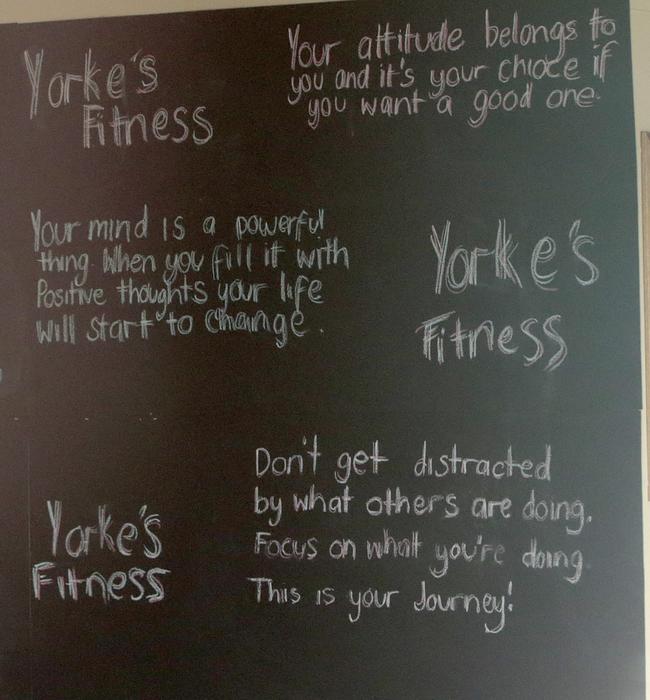 Yorke's
Fitness
Your attitude belongs to
you and it's your chioce if
you want a good one.
Your mind is a powerful
thing. When you fill it with
Positive thoughts your life
will start to change.
Yorke's
Fitness
Yorke's
Fitness
Don't get distracted
by what others are doing.
Focus on what you're doing.
This is your Journey!